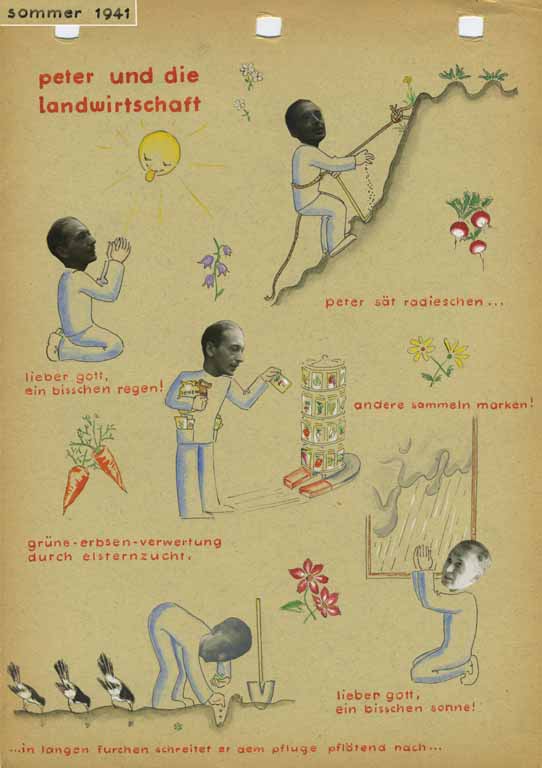 sommer 1941
peter und die
landwirtschaft
peter sät radieschen...
lieber gott,
ein bisschen regen!
andere sammeln marken!
grüne-erbsen-verwertung
durch elsternzucht.
lieber gott,
ein bisschen sonne!
...in langen furchen schreitet er dem pfluge pflötend nach...